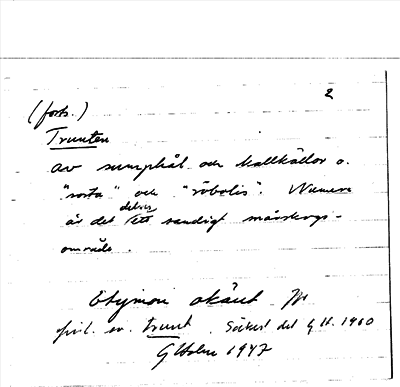 2
(forts.)
Trunten
av sumphål och kallkällor o.
"rosta" och "röbolis". Numera
är det delvis ett sandigt mårskogs-
område.
Etymon okänt. Jfr
fvil. sv. trunt. Säkert det G H. 1960
G Holm 1947